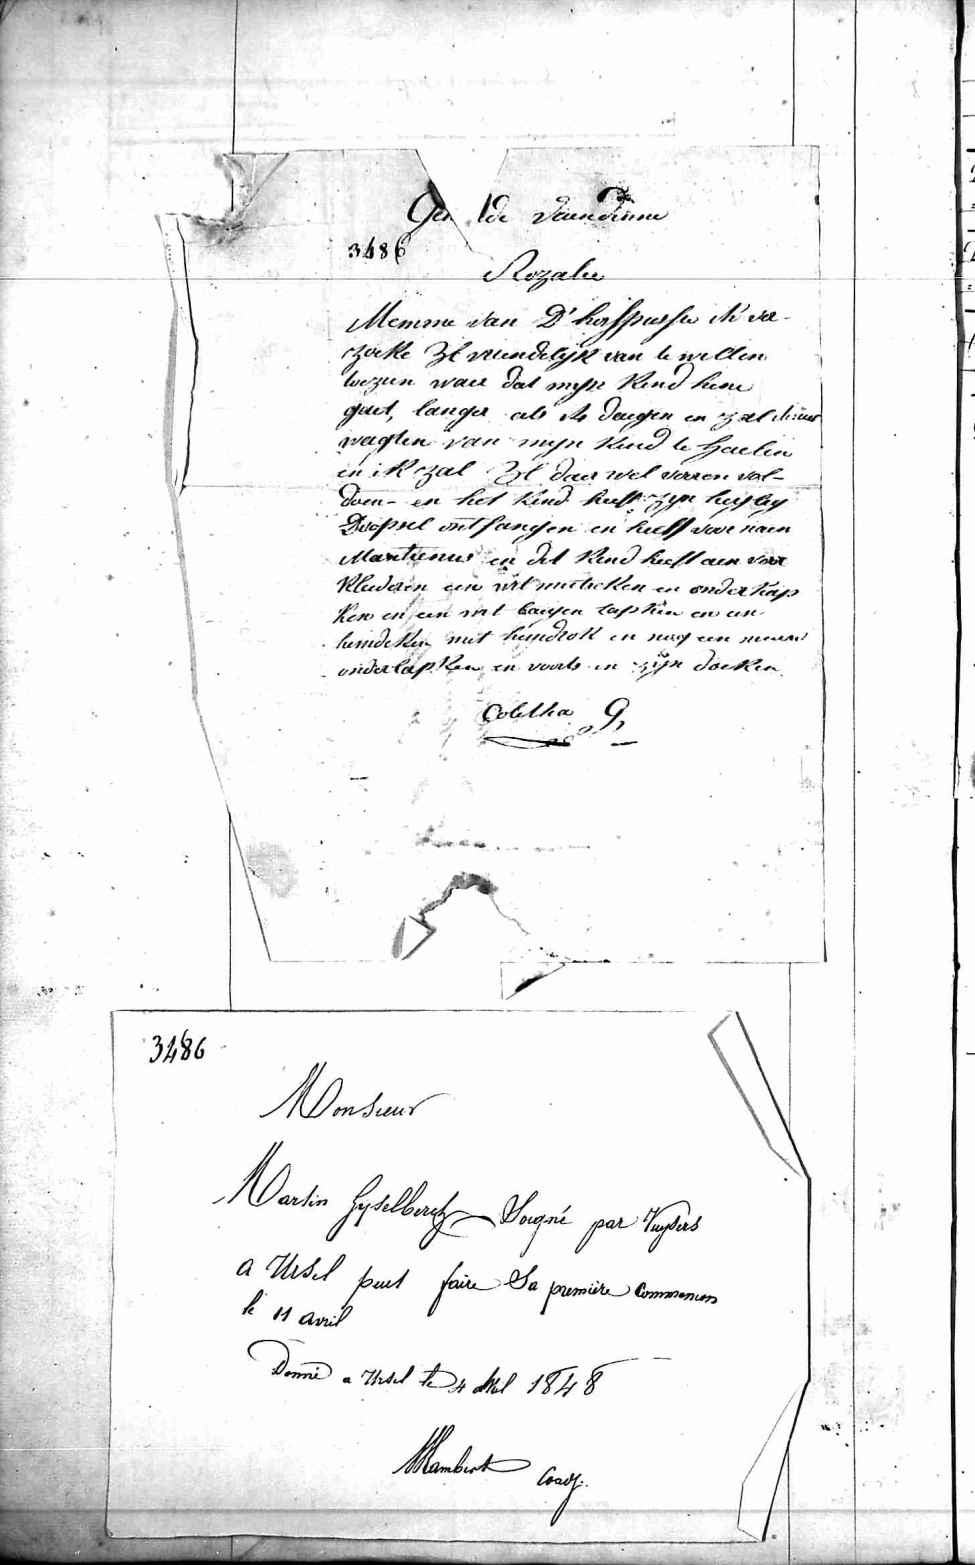 Rozalie
3486
Memme van D'
zoeke Zl vriendelijk van te willen
wezen waer dat mijn kind hene
gaet, langer als 14 daegen en zal ik niet
wagten van mijn kind te haelen
en ik zal Zl daer wel vooren vol-
doen - en het kind heeft zijn heylig
Doopsel ontfangen en heeft voor naem
Martienus en dit kind heeft aen voor
kleederen een wit mutseken en onderkap
ken en een wit baeyen lapken en een
hemdeken met hemdrok en nog een nieuw
onderlapken en voorts in zijn doeken
Coletha G
3486
Monsieur
Martin Gyselberch Soigné par Vuysers
a Ursel peut faire Sa première Communion
le 11 avril
Donné a Ursel le 4 1848
Lambert Coadj.